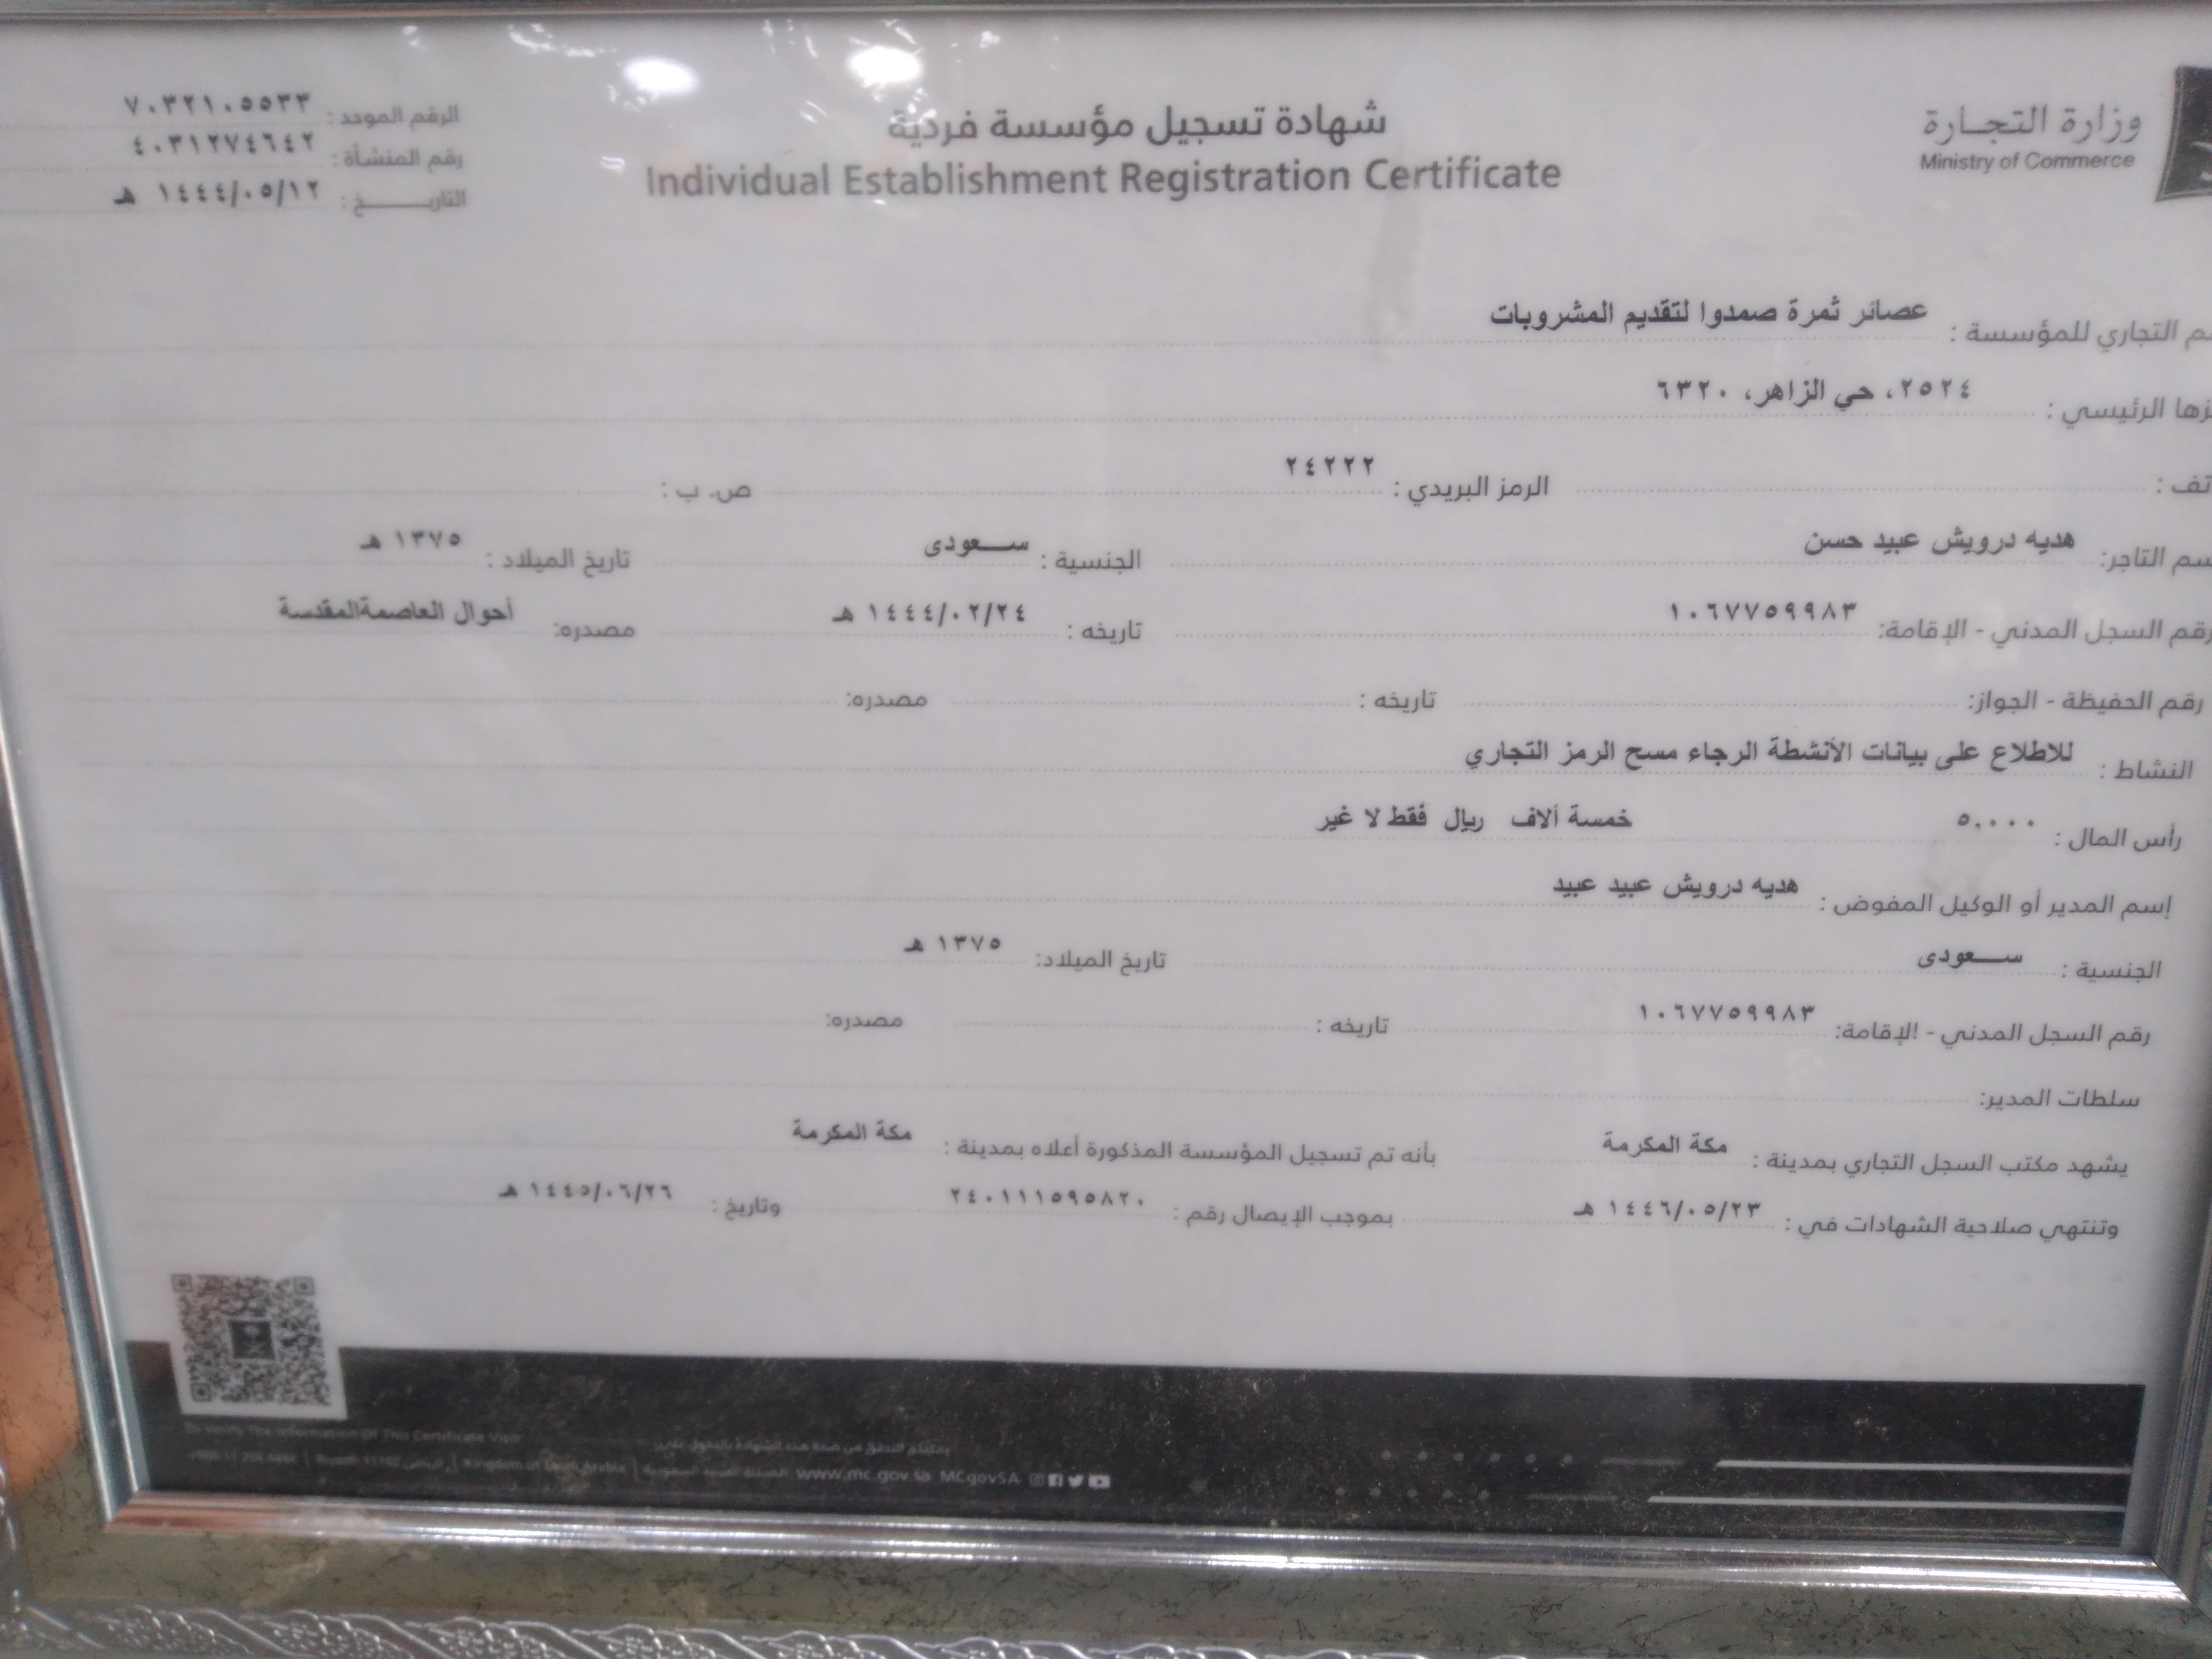 وزارة التجارة
Ministry of Commerce
شهادة تسجيل مؤسسة فردية
Individual Establishment Registration Certificate
الرقم الموحد : ٧٠٣٢١٠٥٥٣٣
رقم المنشأة : ٤٠٣١٢٧٤٦٤٢
التاريخ : ١٤٤٤/٠٥/١٢ هـ
التجاري للمؤسسة : عصائر ثمرة صمدوا لتقديم المشروبات
الرئيسي : ٢٥٢٤، حي الزاهر، ٦٣٢٠
الرمز البريدي : ٢٤٢٢٢ ص. ب :
التاجر: هديه درويش عبيد حسن الجنسية : سعودى تاريخ الميلاد : ١٣٧٥ هـ
رقم السجل المدني - الإقامة: ١٠٦٧٧٥٩٩٨٣ تاريخه : ١٤٤٤/٠٢/٢٤ هـ مصدره: أحوال العاصمةالمقدسة
رقم الحفيظة - الجواز: تاريخه : مصدره:
النشاط : للاطلاع على بيانات الأنشطة الرجاء مسح الرمز التجاري
رأس المال : ٥,٠٠٠ خمسة ألاف ريال فقط لا غير
إسم المدير أو الوكيل المفوض : هديه درويش عبيد عبيد
الجنسية : سعودى تاريخ الميلاد: ١٣٧٥ هـ
رقم السجل المدني - الإقامة: ١٠٦٧٧٥٩٩٨٣ تاريخه : مصدره:
سلطات المدير:
يشهد مكتب السجل التجاري بمدينة : مكة المكرمة بأنه تم تسجيل المؤسسة المذكورة أعلاه بمدينة : مكة المكرمة
وتنتهي صلاحية الشهادات في : ١٤٤٦/٠٥/٢٣ هـ بموجب الإيصال رقم : ٢٤٠١١١٥٩٥٨٢٠ وتاريخ : ١٤٤٥/٠٦/٢٦ هـ
To Verify The Information Of This Certificate Visit يمكنكم التحقق من صحة هذه الشهادة بالدخول على
Kingdom of Saudi Arabia | المملكة العربية السعودية www.mc.gov.sa MCgovSA